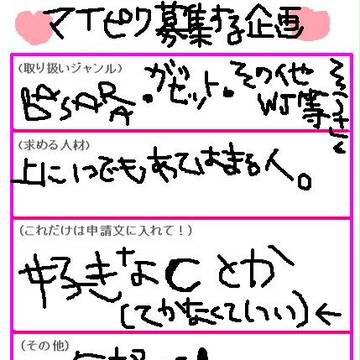 マイピク募集する企画
(取り扱いジャンル)
BASARA・ガゼット・その他WJ等
(求める人材)
上に1つでもあてはまる人。
(これだけは申請文に入れて!)
好きなCとか
(てかなくていい)←
(その他)